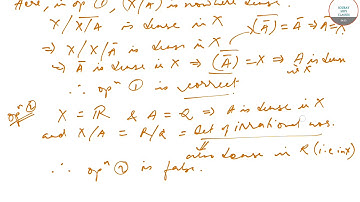 Here, in opⁿ ①, (X/A) is nowhere dense.
X/X̅/̅A̅ is dense in X
⇒ X/X/Ā is dense in X (Ā)‾ = Ā ⇒ A = X
⇒ Ā is dense in X ⇒ (Ā)‾ = X ⇒ A is dense in X
∴ opⁿ ① is correct
opⁿ ② X = ℝ & A = Q ⇒ A is dense in X
and X/A = R/Q = Set of irrational nos.
also dense in R (i.e. in X)
∴ opⁿ ② is false.